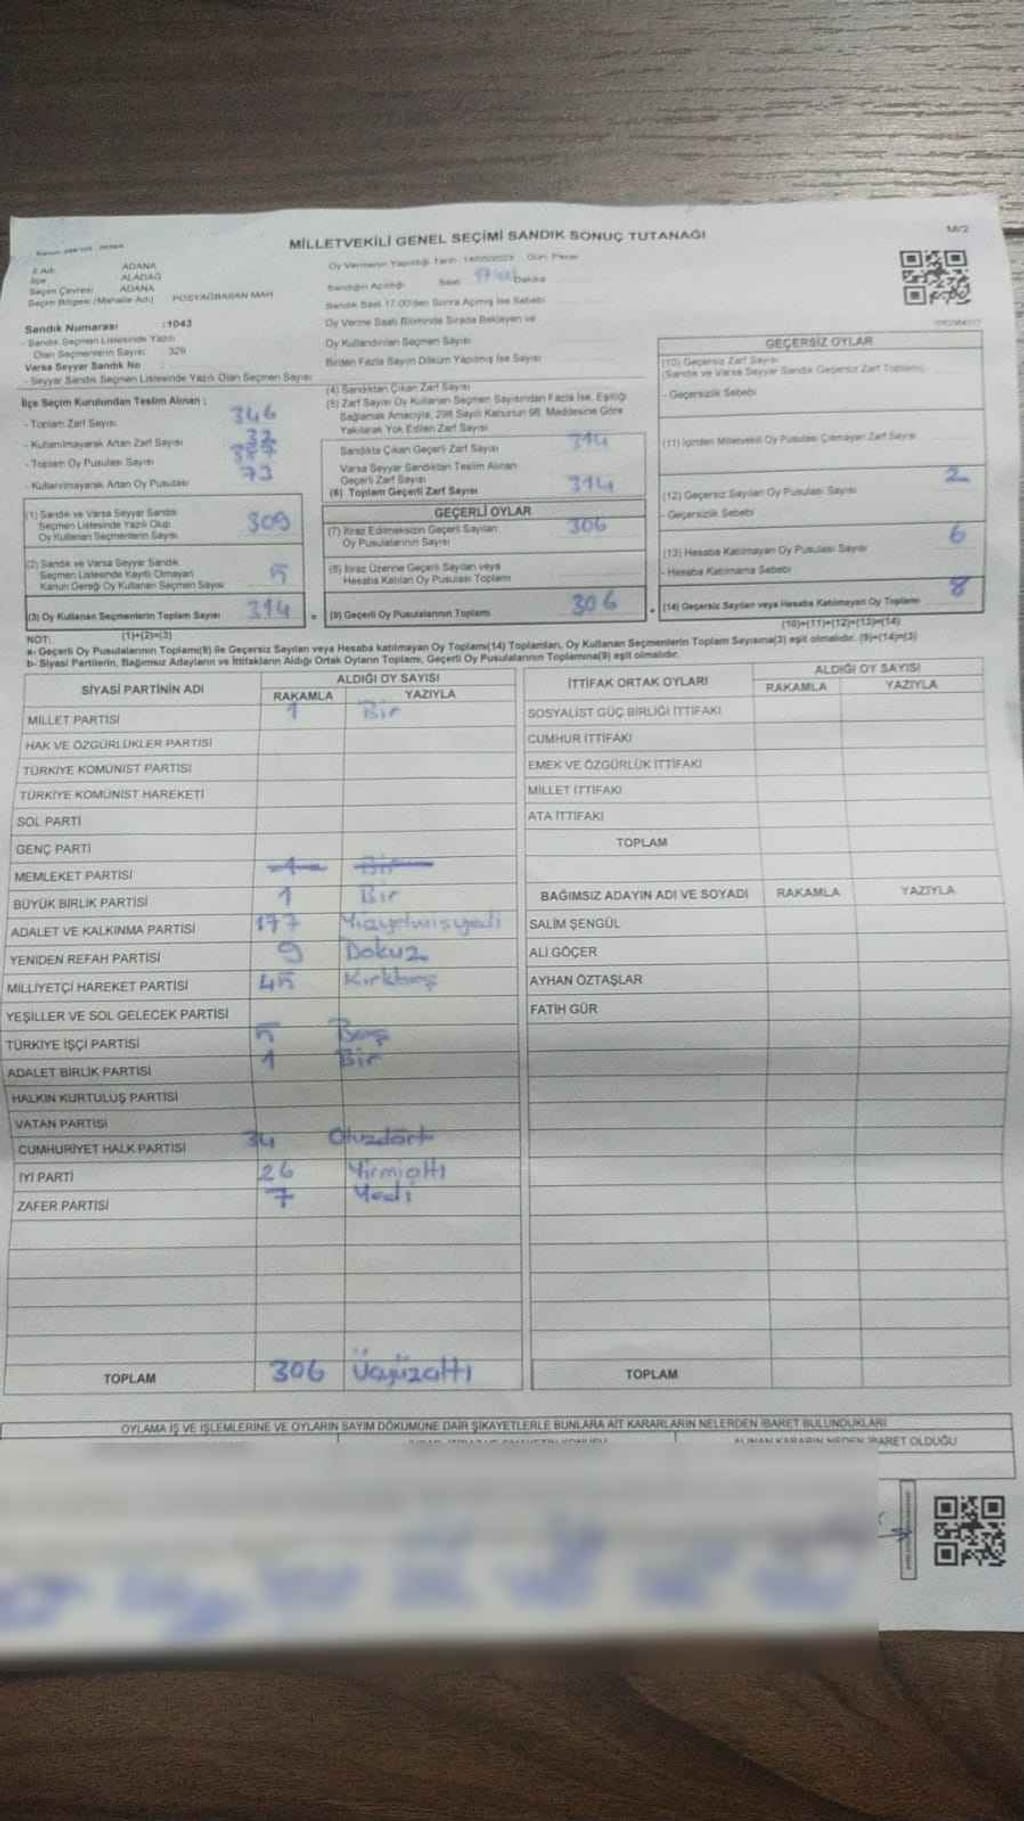 MİLLETVEKİLİ GENEL SEÇİMİ SANDIK SONUÇ TUTANAĞI
İl Adı ADANA
İlçe ALADAĞ
Seçim Çevresi ADANA
Seçim Bölgesi (Mahalle Adı) POSYAĞBASAN MAH
Sandık Numarası :1043
- Sandık Seçmen Listesinde Yazılı
Olan Seçmenlerin Sayısı 329
Varsa Seyyar Sandık No :
- Seyyar Sandık Seçmen Listesinde Yazılı Olan Seçmen Sayısı
İlçe Seçim Kurulundan Teslim Alınan :
- Toplam Zarf Sayısı 346
- Kullanılmayarak Artan Zarf Sayısı 32
- Toplam Oy Pusulası Sayısı
- Kullanılmayarak Artan Oy Pusulası 73
(1) Sandık ve Varsa Seyyar Sandık
Seçmen Listesinde Yazılı Olup
Oy Kullanan Seçmenlerin Sayısı 309
(2) Sandık ve Varsa Seyyar Sandık
Seçmen Listesinde Kayıtlı Olmayan
Kanun Gereği Oy Kullanan Seçmen Sayısı 5
(3) Oy Kullanan Seçmenlerin Toplam Sayısı 314
(1)+(2)=(3)
Oy Vermenin Yapıldığı Tarih : 14/05/2023 Gün: Pazar
Sandığın Açıldığı Saat 17:00 Dakika
Sandık Saat 17.00'den Sonra Açılmış İse Sebebi
Oy Verme Saati Bitiminde Sırada Bekleyen ve
Oy Kullandırılan Seçmen Sayısı
Birden Fazla Sayım Döküm Yapılmış İse Sayısı
(4) Sandıktan Çıkan Zarf Sayısı
(5) Zarf Sayısı Oy Kullanan Seçmen Sayısından Fazla İse, Eşitliği
Sağlamak Amacıyla, 298 Sayılı Kanunun 98. Maddesine Göre
Yakılarak Yok Edilen Zarf Sayısı
Sandıkta Çıkan Geçerli Zarf Sayısı 314
Varsa Seyyar Sandıktan Teslim Alınan
Geçerli Zarf Sayısı
(6) Toplam Geçerli Zarf Sayısı 314
GEÇERLİ OYLAR
(7) İtiraz Edilmeksizin Geçerli Sayılan
Oy Pusulalarının Sayısı 306
(8) İtiraz Üzerine Geçerli Sayılan veya
Hesaba Katılan Oy Pusulası Toplamı
(9) Geçerli Oy Pusulalarının Toplamı 306
M/2
GEÇERSİZ OYLAR
(10) Geçersiz Zarf Sayısı
(Sandık ve Varsa Seyyar Sandık Geçersiz Zarf Toplamı)
- Geçersizlik Sebebi
(11) İçinden Milletvekili Oy Pusulası Çıkmayan Zarf Sayısı
2
(12) Geçersiz Sayılan Oy Pusulası Sayısı
- Geçersizlik Sebebi
6
(13) Hesaba Katılmayan Oy Pusulası Sayısı
- Hesaba Katılmama Sebebi
(14) Geçersiz Sayılan veya Hesaba Katılmayan Oy Toplamı 8
(10)+(11)+(12)+(13)=(14)
NOT:
a- Geçerli Oy Pusulalarının Toplamı(9) ile Geçersiz Sayılan veya Hesaba katılmayan Oy Toplamı(14) Toplamları, Oy Kullanan Seçmenlerin Toplam Sayısına(3) eşit olmalıdır. (9)+(14)=(3)
b- Siyasi Partilerin, Bağımsız Adayların ve İttifakların Aldığı Ortak Oyların Toplamı, Geçerli Oy Pusulalarının Toplamına(9) eşit olmalıdır.
SİYASİ PARTİNİN ADI ALDIĞI OY SAYISI
RAKAMLA YAZIYLA
MİLLET PARTİSİ 1 Bir
HAK VE ÖZGÜRLÜKLER PARTİSİ
TÜRKİYE KOMÜNİST PARTİSİ
TÜRKİYE KOMÜNİST HAREKETİ
SOL PARTİ
GENÇ PARTİ
MEMLEKET PARTİSİ 1 Bir
BÜYÜK BİRLİK PARTİSİ 1 Bir
ADALET VE KALKINMA PARTİSİ 177
YENİDEN REFAH PARTİSİ 9 Dokuz
MİLLİYETÇİ HAREKET PARTİSİ 45 Kırkbeş
YEŞİLLER VE SOL GELECEK PARTİSİ
TÜRKİYE İŞÇİ PARTİSİ 5 Beş
ADALET BİRLİK PARTİSİ 1 Bir
HALKIN KURTULUŞ PARTİSİ
VATAN PARTİSİ
CUMHURİYET HALK PARTİSİ 34 Otuzdört
İYİ PARTİ 26 Yirmialtı
ZAFER PARTİSİ 7 Yedi
TOPLAM 306 Üçyüzaltı
İTTİFAK ORTAK OYLARI ALDIĞI OY SAYISI
RAKAMLA YAZIYLA
SOSYALİST GÜÇ BİRLİĞİ İTTİFAKI
CUMHUR İTTİFAKI
EMEK VE ÖZGÜRLÜK İTTİFAKI
MİLLET İTTİFAKI
ATA İTTİFAKI
TOPLAM
BAĞIMSIZ ADAYIN ADI VE SOYADI RAKAMLA YAZIYLA
SALİM ŞENGÜL
ALİ GÖÇER
AYHAN ÖZTAŞLAR
FATİH GÜR
TOPLAM
OYLAMA İŞ VE İŞLEMLERİNE VE OYLARIN SAYIM DÖKÜMÜNE DAİR ŞİKAYETLERLE BUNLARA AİT KARARLARIN NELERDEN İBARET BULUNDUKLARI
ALINAN KARARIN NEDEN İBARET OLDUĞU